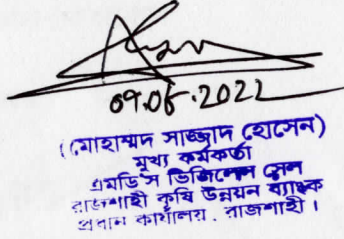 09.06.2022
(মোহাম্মদ সাজ্জাদ হোসেন)
মূখ্য কর্মকর্তা
এমডি'স ভিজিলেন্স সেল
রাজশাহী কৃষি উন্নয়ন ব্যাংক
প্রধান কার্যালয়, রাজশাহী।